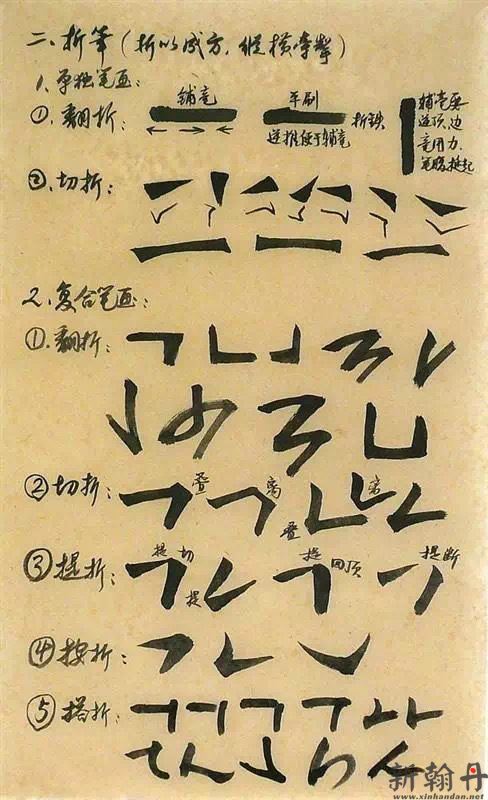 二、折笔(折以成方,纵横牵掣)
1、单独笔画:
①、翻折:
铺毫
平刷
折铁
逆推便于铺毫
辅毫要
逆顶、边
竟用力、
笔腹挺起
②、切折:
2、复合笔画:
①、翻折:
②切折:
叠
离
叠
离
③提折:
提 切
提
提 回顶
提断
④按折:
⑤搭折:
新翰丹
www.xinhandan.net